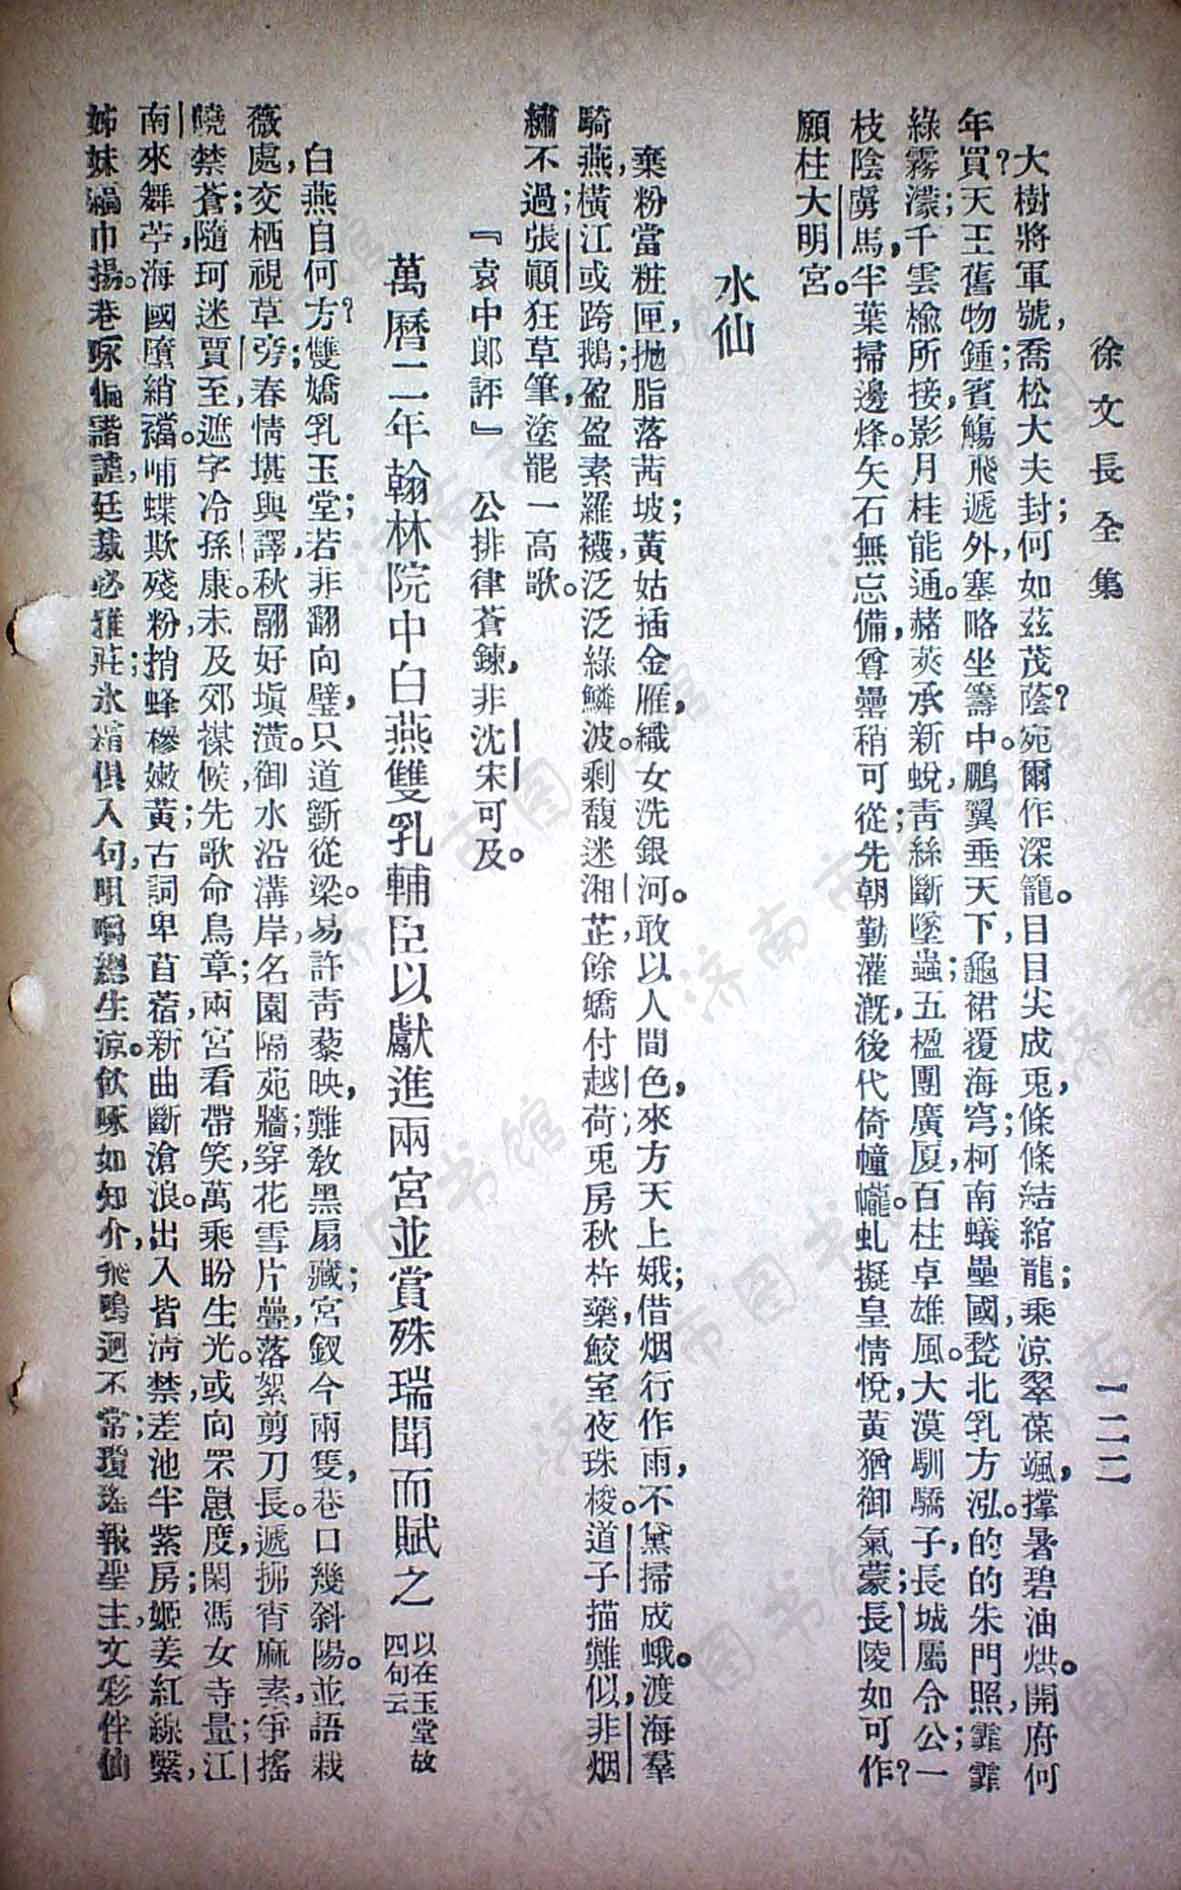 徐文長全集　　一二二
大樹將軍號，喬松大夫封；何如茲茂蔭？宛爾作深籠。目目尖成兎，條條結綰龍；乘涼翠葆颯，撑暑碧油烘。開府何
年？買天王舊物鍾；賓觴飛遞外，塞略坐籌中。鵬翼垂天下，龜裙覆海穹；柯南蟻壘國，甃北乳方泓。的的朱門照；霏霏
綠霧濛；千雲檐所接，影月桂能通。赭莢承新蛻；青絲斷墜蟲；五楹團廣厦，百柱卓雄風。大漠馴驕子，長城屬令公；一
枝陰虜馬，半葉掃邊烽。矢石無忘備，尊罍稍可從；先朝勤灌溉，後代倚幢幪。虬擬皇情悅，黃猶御氣蒙；長陵如可作？
願柱大明宮。
水仙
棄粉當粧匣，拋脂落茜坡；黃姑插金雁，織女洗銀河。敢以人間色，來方天上娥；借烟行作雨，不黛掃成蛾。渡海羣
騎燕，橫江或跨鵝；盈盈素羅襪，泛泛綠鱗波。剩馥迷湘芷，餘嬌付越荷；兎房秋杵藥，鮫室夜珠梭。道子描難似，非烟
繡不過；張顚狂草筆，塗罷一高歌。
『袁中郎評』　公排律蒼鍊，非沈宋可及。
萬曆二年翰林院中白燕雙乳輔臣以獻進兩宮並賞殊瑞聞而賦之　以在玉堂故四句云
白燕自何方？雙嬌乳玉堂；若非翻向壁，只道斷從梁。易許青藜映，難教黑扇藏；宮釵今兩隻，巷口幾斜陽。並語栽
薇處，交栖視草旁；春情堪與譯，秋翮好塡潢。御水沿溝岸，名園隔苑牆；穿花雪片疊，落絮剪刀長。遞拂宵麻素，爭搖
曉禁蒼；隨珂迷賈至，遮字冷孫康。未及郊禖候，先歌命鳥章；兩宮看帶笑，萬乘盼生光。或向罘罳度，閑馮女寺量；江
南來舞苧，海國墮綃襠。哺蝶欺殘粉，捎蜂糝嫩黃；古詞卑苜蓿，新曲斷滄浪。出入皆淸禁，差池半紫房；姬姜紅線繫，
姊妹縞巾揚。巷啄偏諧謔，廷裁必雅莊；氷霜俱入句，咀嚼總生涼。飮啄如知介，飛鳴迥不常；瓊瑤報聖主，文彩伴仙